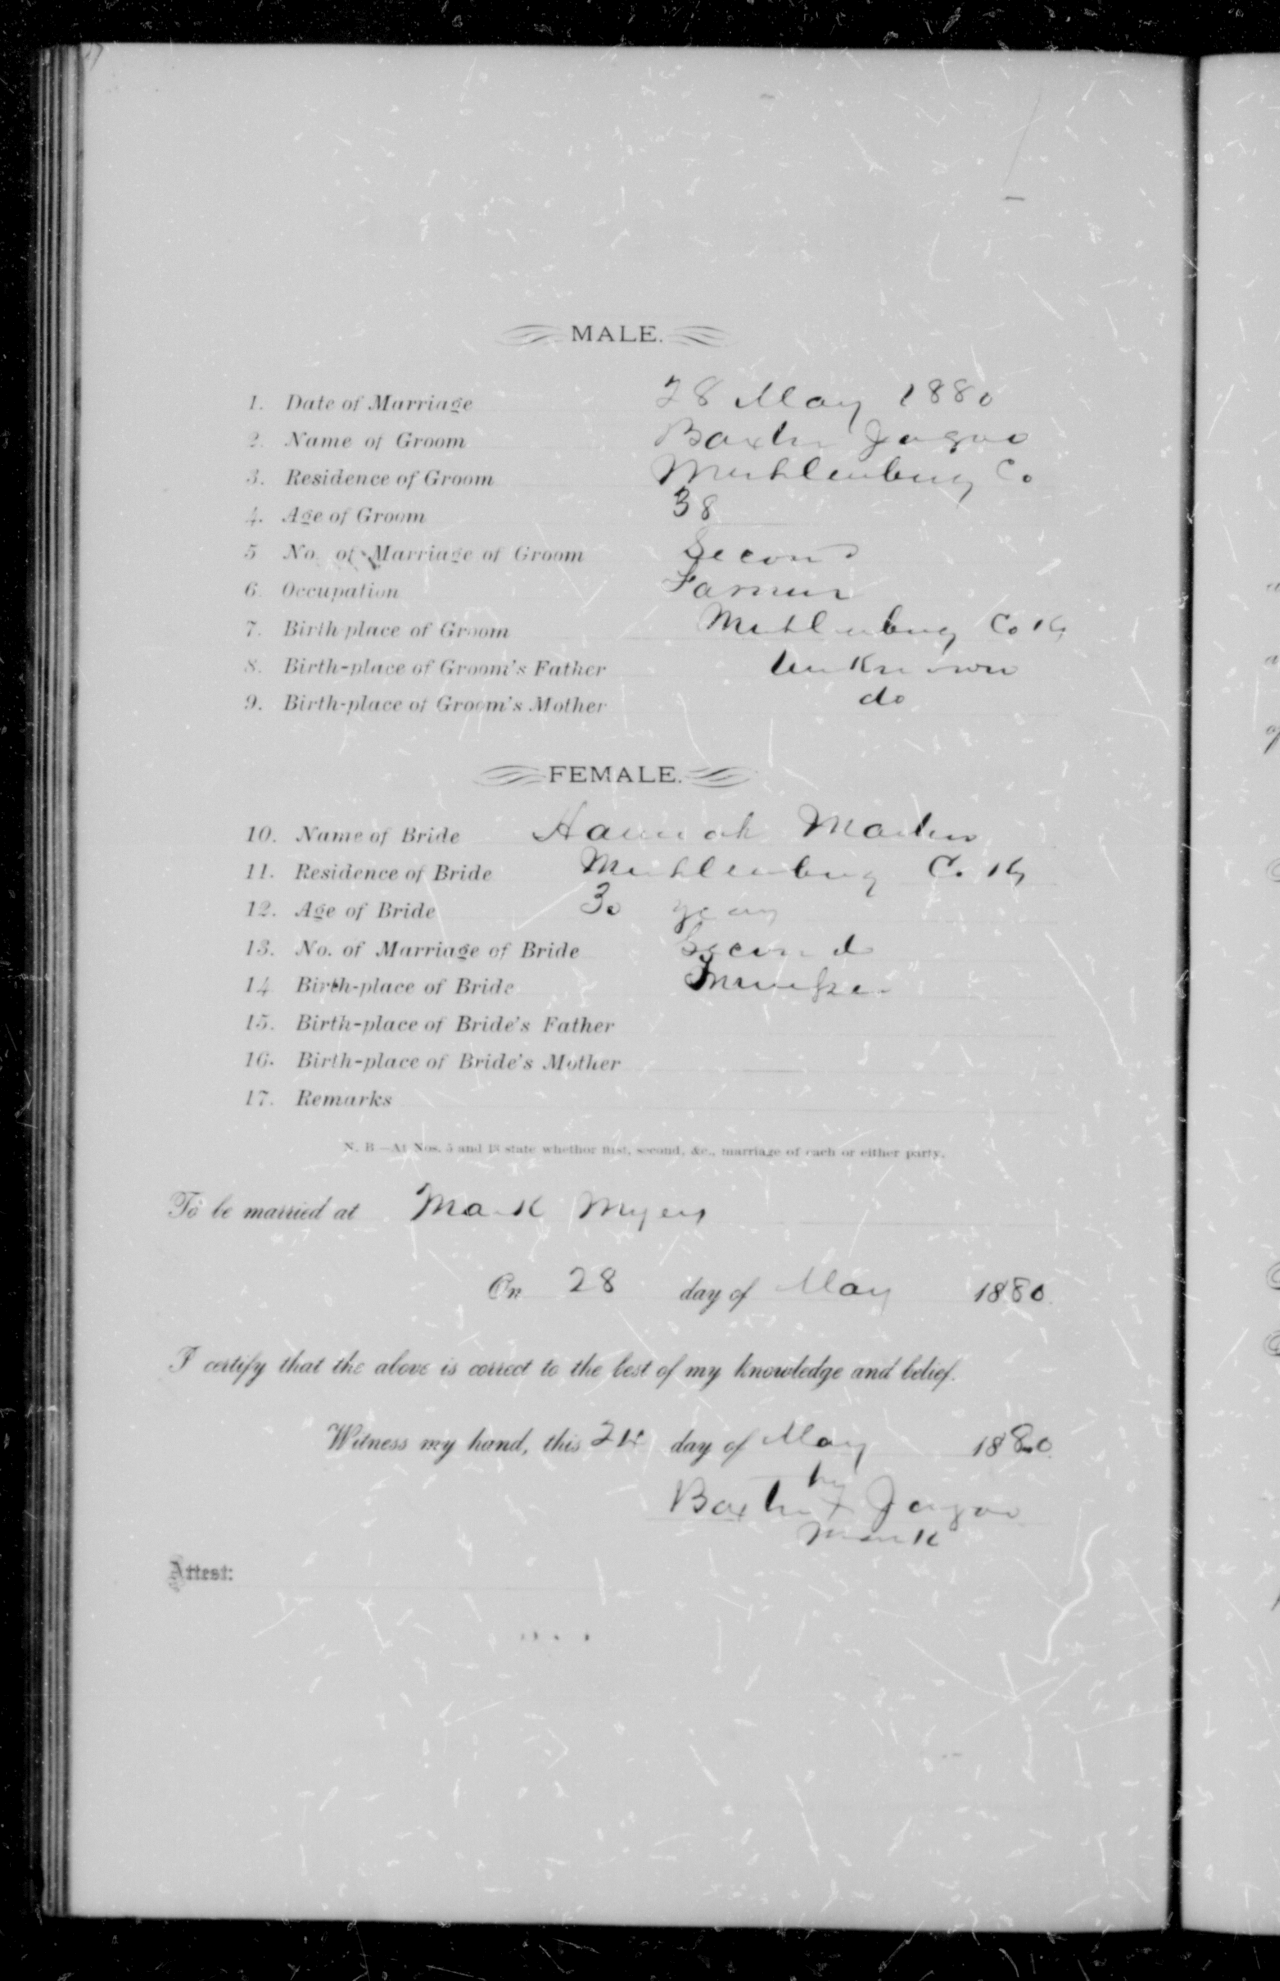 MALE.
1. Date of Marriage 28 May 1880
2. Name of Groom Baxter Jagoe
3. Residence of Groom Muhlenburg Co
4. Age of Groom 38
5 No. of Marriage of Groom Second
6. Occupation Farmer
7. Birth place of Groom Muhlenburg Co Ky
8. Birth-place of Groom's Father Unknown
9. Birth-place of Groom's Mother do
FEMALE.
10. Name of Bride Hannah
11. Residence of Bride Muhlenburg Co Ky
12. Age of Bride 30 years
13. No. of Marriage of Bride Second
14 Birth-place of Bride
15. Birth-place of Bride's Father
16. Birth-place of Bride's Mother
17. Remarks
N. B.—At Nos. 5 and 13 state whether first, second, &c., marriage of each or either party.
To be married at Mark Myers
On 28 day of May 1880
I certify that the above is correct to the best of my knowledge and belief.
Witness my hand, this 24 day of May 1880
his
Baxter X Jagoe
mark
Attest: